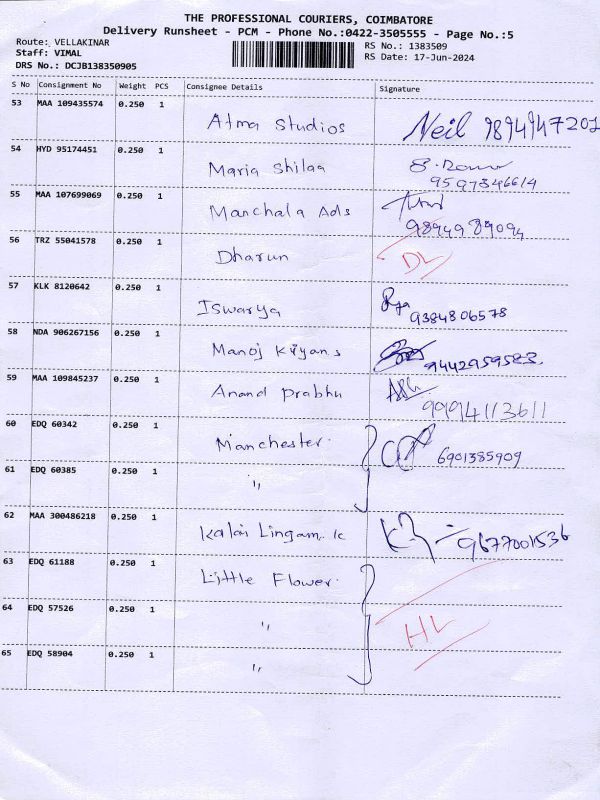 THE PROFESSIONAL COURIERS, COIMBATORE
Delivery Runsheet - PCM - Phone No.:0422-3505555 - Page No.:5
Route: VELLAKINAR RS No.: 1383509
Staff: VIMAL RS Date: 17-Jun-2024
DRS No.: DCJB138350905
S No Consignment No Weight PCS Consignee Details Signature
53 MAA 109435574 0.250 1 Atma Studios Neil 9894947201
54 HYD 95174451 0.250 1 Maria Shilaa
9597346614
55 MAA 107699069 0.250 1 Manchala Ads
9894989094
56 TRZ 55041578 0.250 1 Dharun DL
57 KLK 8120642 0.250 1 Iswarya 9384806578
58 NDA 906267156 0.250 1 Manoj 9442959583.
59 MAA 109845237 0.250 1 Anand Prabhu
9994113611
60 EDQ 60342 0.250 1 Manchester. 6901385909
61 EDQ 60385 0.250 1 "
62 MAA 300486218 0.250 1 Kalai Lingam. K 9677001536
63 EDQ 61188 0.250 1 Little Flower.
64 EDQ 57526 0.250 1 " HL
65 EDQ 58904 0.250 1 "